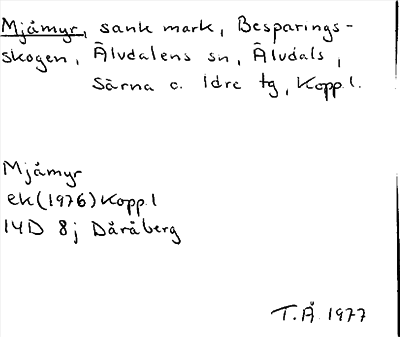 Mjåmyr, sank mark, Besparings-
skogen, Älvdalens sn, Älvdals,
Särna o. Idre tg, Kopp.l.
Mjåmyr
ek(1976)Kopp.l
14D 8j Dåråberg
T.Å 1977